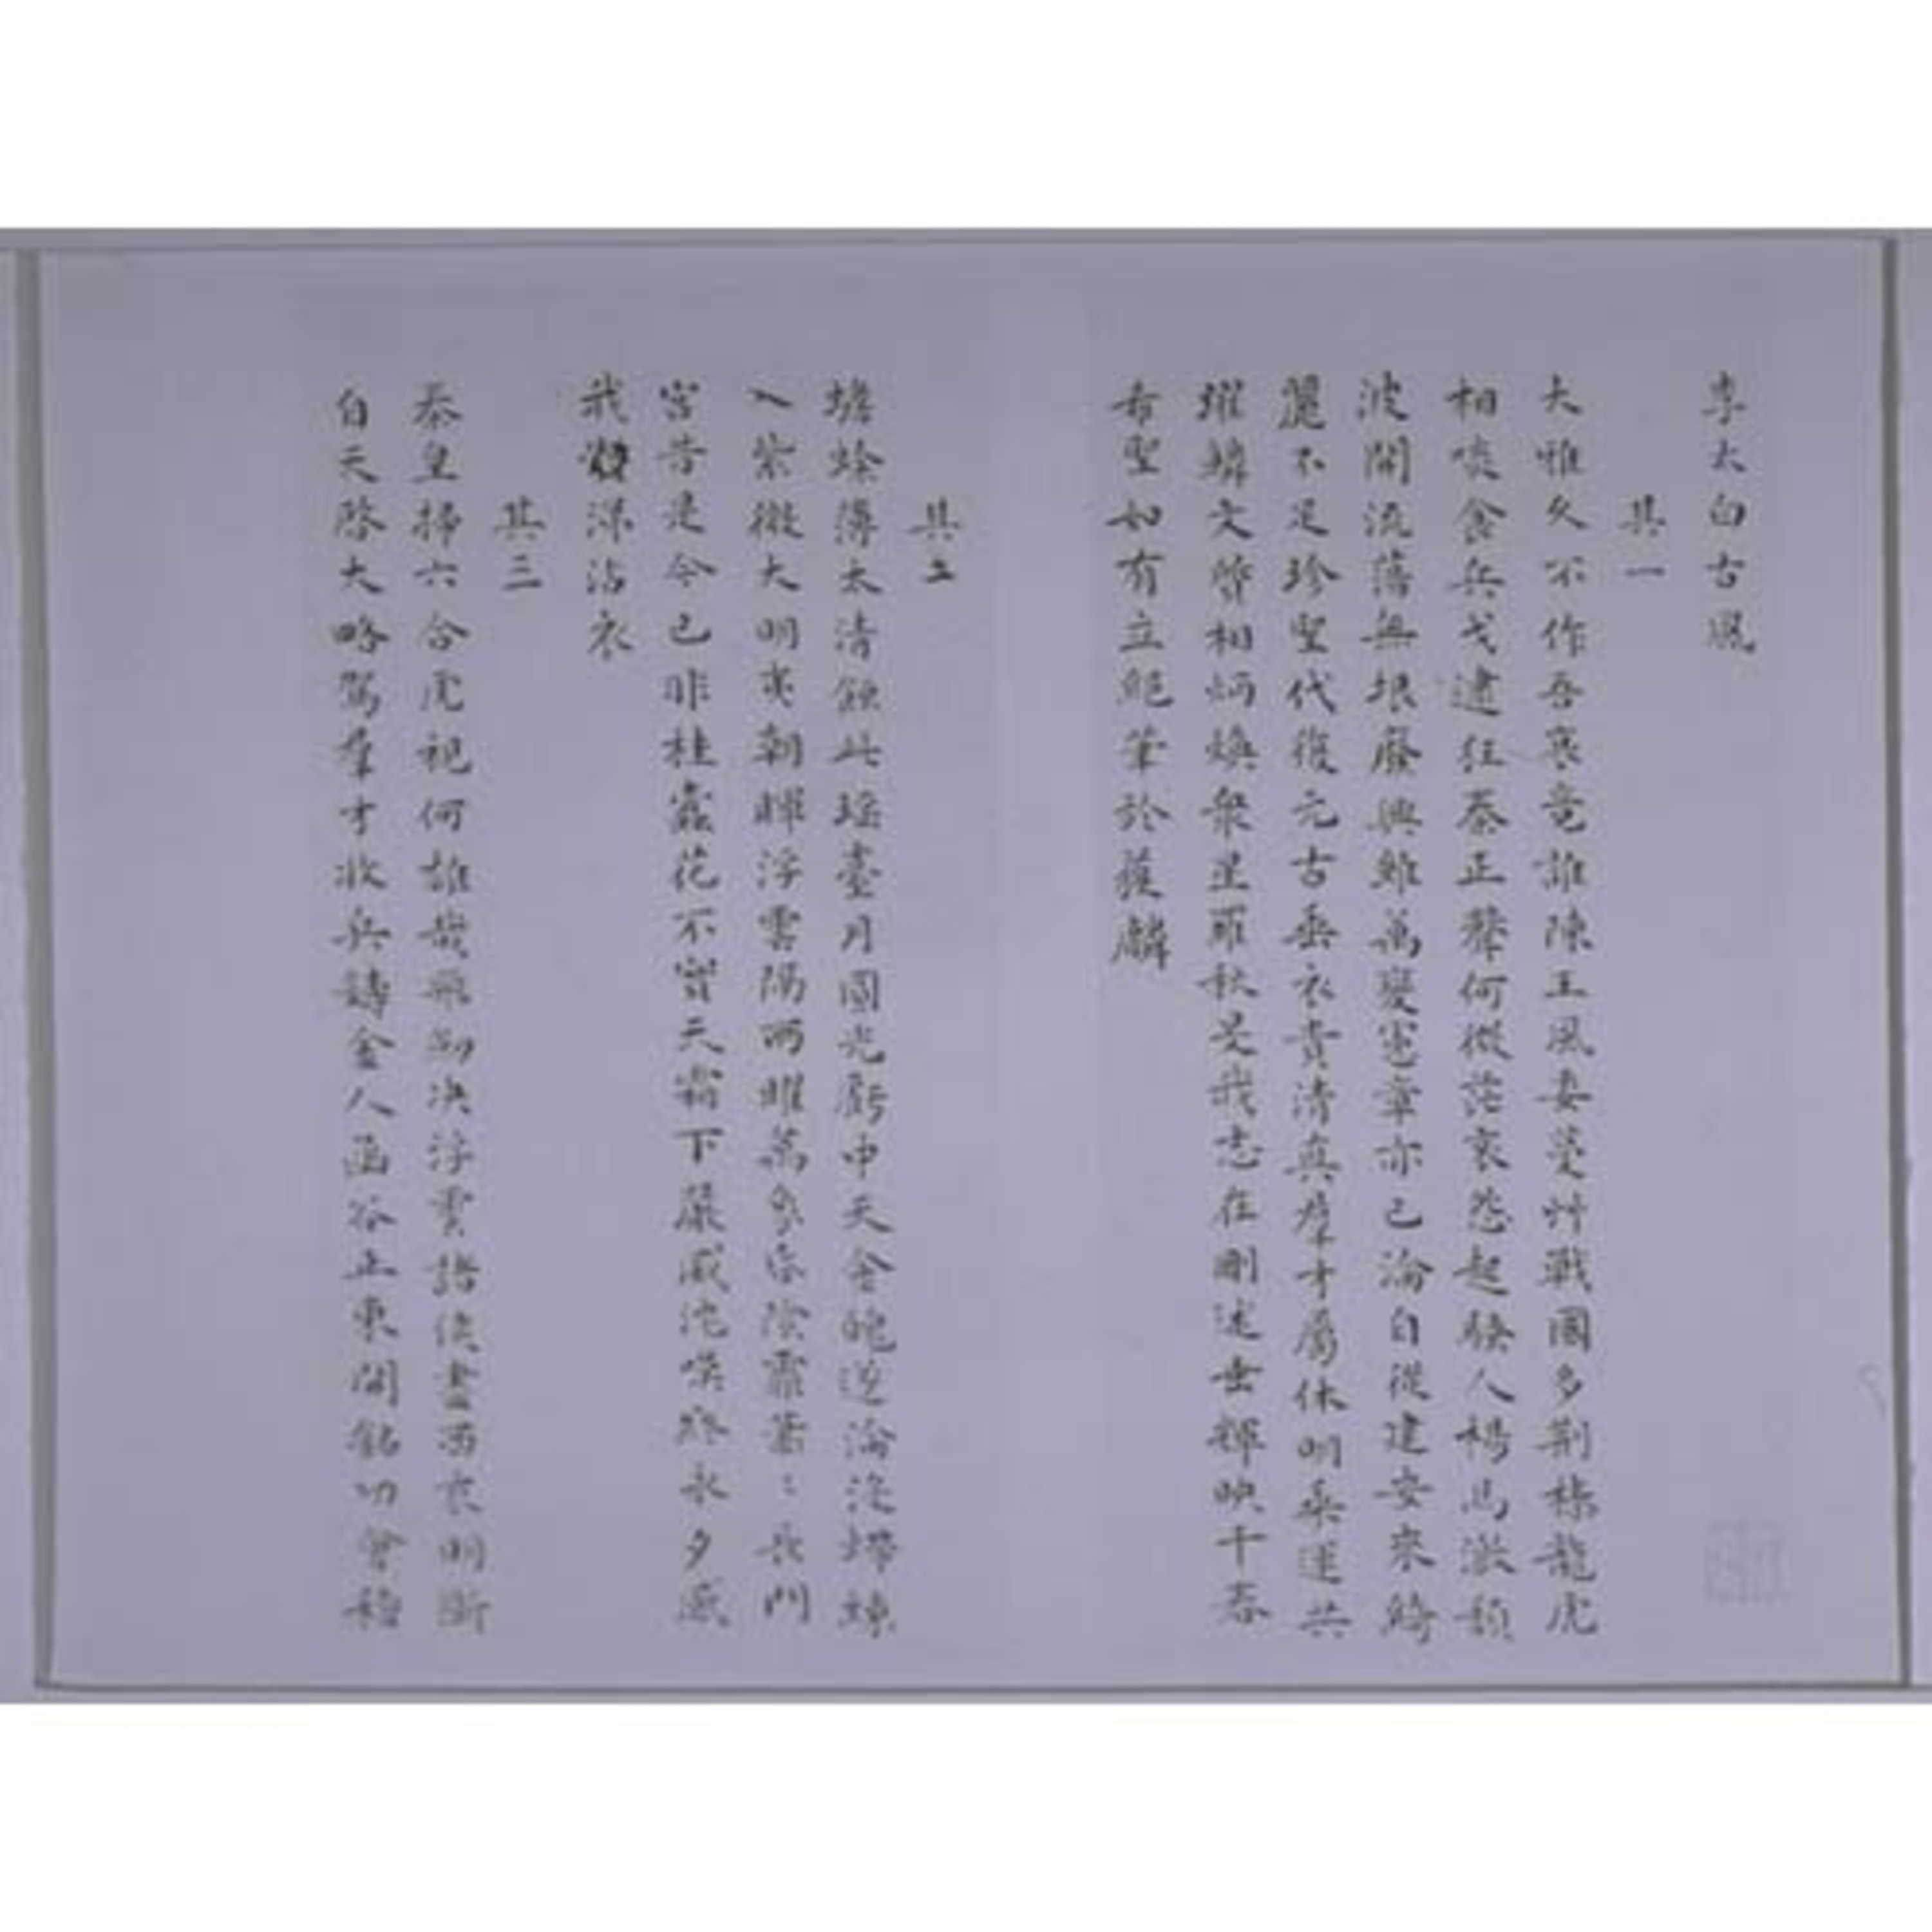 李太白古風
其一
大雅久不作吾衰竟誰陳王風委蔓艸戰國多荆榛龍虎
相啖食兵戈逮狂秦正聲何微茫哀怨起騷人楊馬激頹
波開流蕩無垠廢興雖萬變憲章亦已淪自從建安來綺
麗不足珍聖代復元古垂衣貴清真羣才屬休明乘運共
躍鱗文質相炳煥衆星羅秋旻我志在刪述垂輝映千春
希聖如有立絕筆於獲麟
其二
蟾蜍薄太清蝕此瑤臺月圓光虧中天金魄遂淪沒螮蝀
入紫微大明夷朝暉浮雲隔兩曜萬象昏陰霏蕭〻長門
宮昔是今已非桂蠹花不實天霜下嚴威沈嘆終永夕感
我涕沾衣
其三
秦皇掃六合虎視何雄哉飛劍決浮雲諸侯盡西來明斷
自天啓大略駕羣才收兵鑄金人函谷正東開銘功會稽